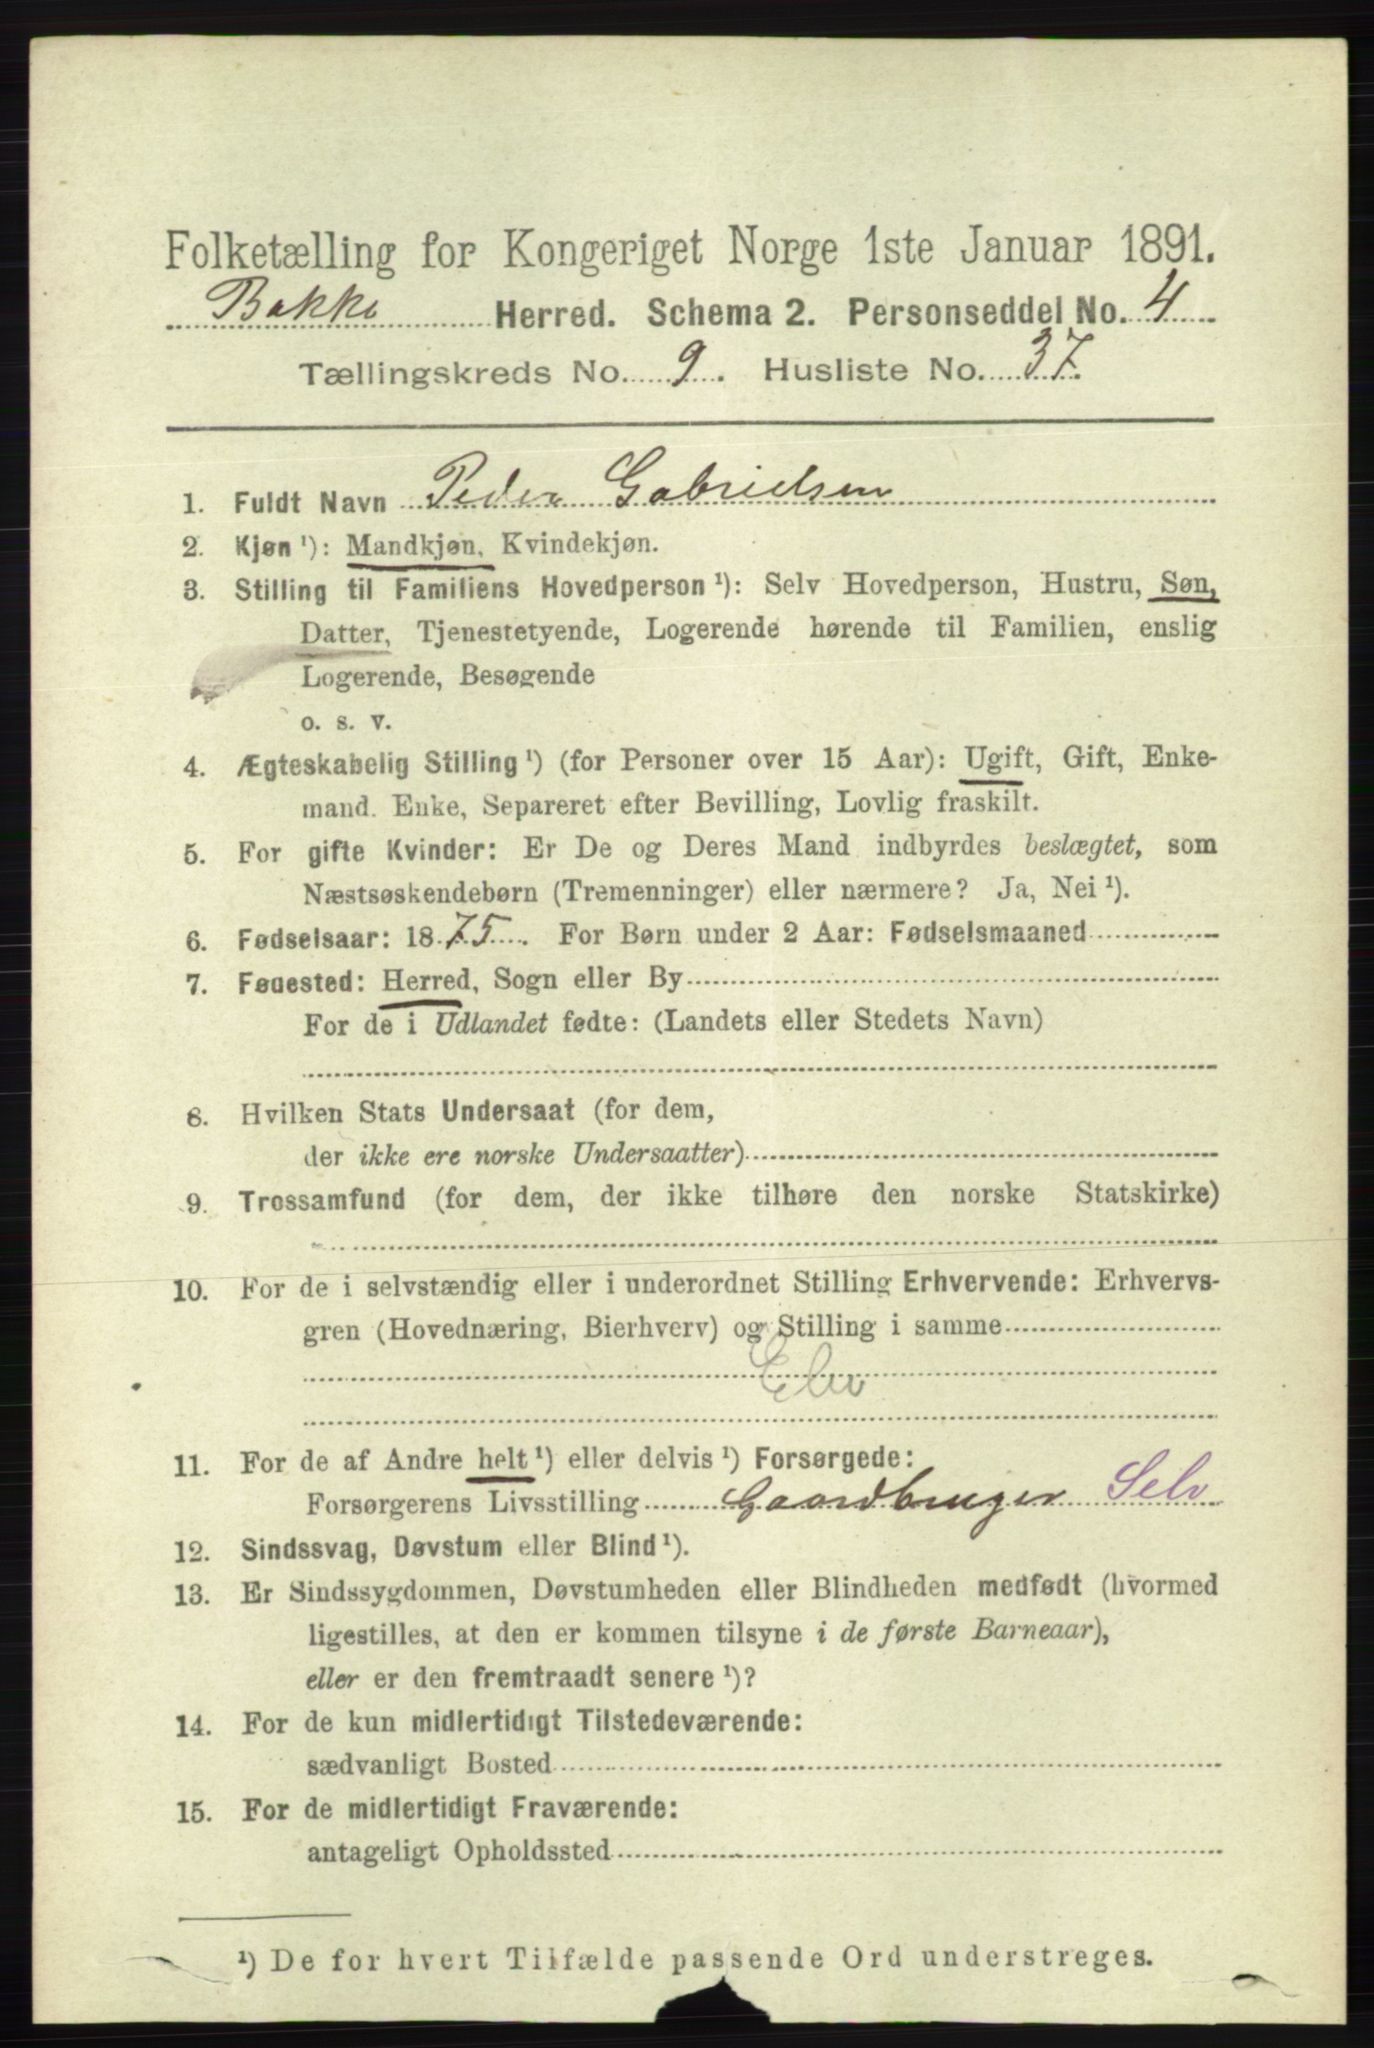 Folketælling for Kongeriget Norge 1ste Januar 1891.
Bakke Herred. Schema 2. Personseddel No. 4
Tællingskreds No. 9. Husliste No. 37.
1. Fuldt Navn Peder Gabrielsen
2. Kjøn ¹): Mandkjøn, Kvindekjøn.
3. Stilling til Familiens Hovedperson ¹): Selv Hovedperson, Hustru, Søn,
Datter, Tjenestetyende, Logerende hørende til Familien, enslig
Logerende, Besøgende
o. s. v.
4. Ægteskabelig Stilling ¹) (for Personer over 15 Aar): Ugift, Gift, Enke-
mand. Enke, Separeret efter Bevilling, Lovlig fraskilt.
5. For gifte Kvinder: Er De og Deres Mand indbyrdes beslægtet, som
Næstsøskendebørn (Tremenninger) eller nærmere? Ja, Nei ¹).
6. Fødselsaar: 1875. For Børn under 2 Aar: Fødselsmaaned
7. Fødested: Herred, Sogn eller By
For de i Udlandet fødte: (Landets eller Stedets Navn)
8. Hvilken Stats Undersaat (for dem,
der ikke ere norske Undersaatter)
9. Trossamfund (for dem, der ikke tilhøre den norske Statskirke)
10. For de i selvstændig eller i underordnet Stilling Erhvervende: Erhvervs-
gren (Hovednæring, Bierhverv) og Stilling i samme
Elev
11. For de af Andre helt ¹) eller delvis ¹) Forsørgede:
Forsørgerens Livsstilling Gaardbruger Selv
12. Sindssvag, Døvstum eller Blind ¹).
13. Er Sindssygdommen, Døvstumheden eller Blindheden medfødt (hvormed
ligestilles, at den er kommen tilsyne i de første Barneaar),
eller er den fremtraadt senere ¹)?
14. For de kun midlertidigt Tilstedeværende:
sædvanligt Bosted
15. For de midlertidigt Fraværende:
antageligt Opholdssted
¹) De for hvert Tilfælde passende Ord understreges.